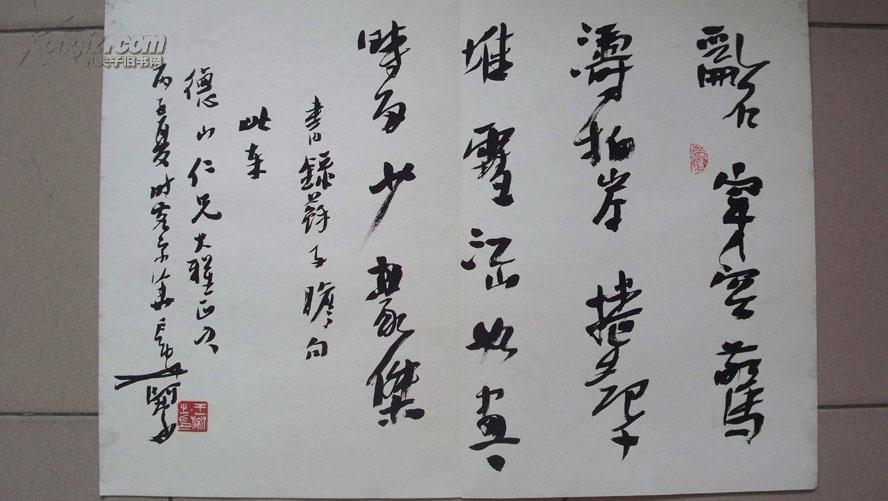 亂石穿空驚
濤拍岸捲起千
堆雪江山如畫
時多少豪傑
書錄蘇子瞻句
此奉
德山仁兄大雅正之
丙子夏時
Kongfz.com
孔夫子旧书网